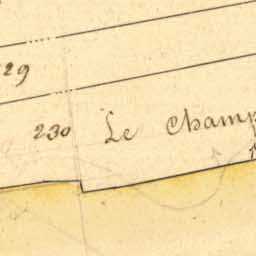 29
230 Le Champ